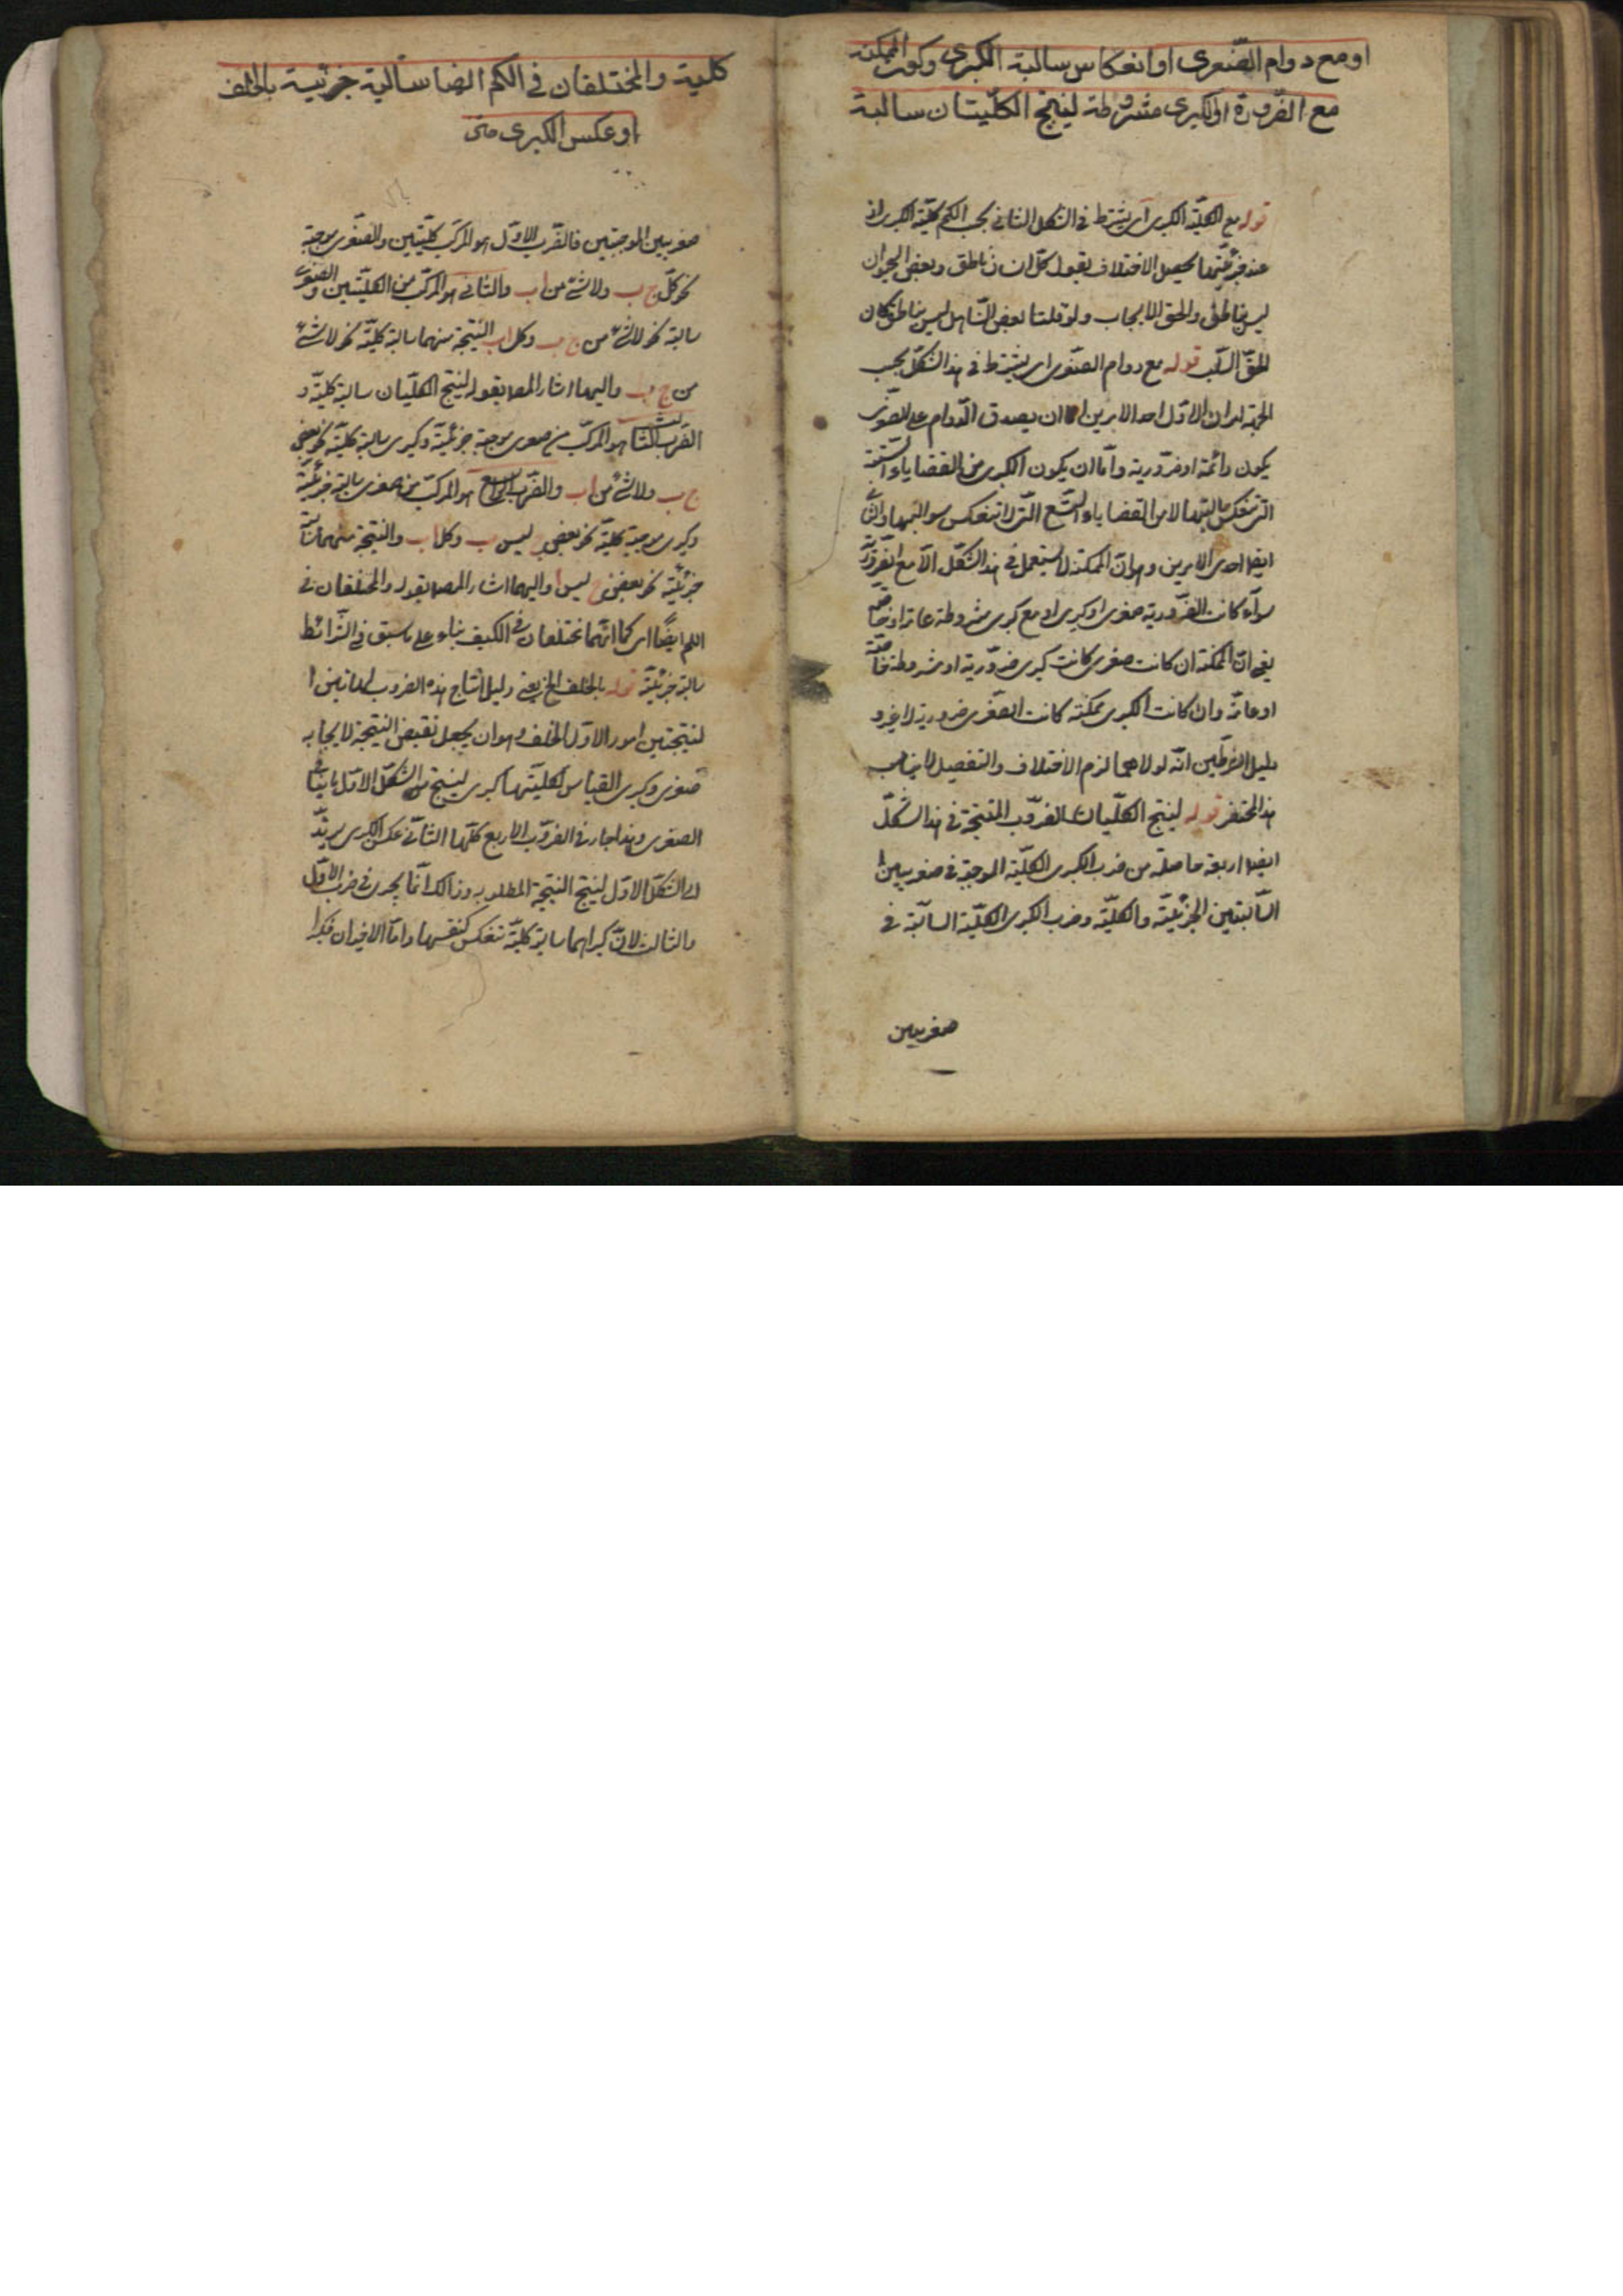 او مع دوام الصغرى او انعكاس سالبة الكبرى وكون الممكنة
مع الضرورة او الكبرى مشروطة لينتج الكليتان سالبة
قوله مع كلية الكبرى اى يشترط فى الشكل الثانى بحسب الكم كلية الكبرى اذ
عند جزئيتها يحصل الاختلاف كقولنا كل انسان ناطق وبعض الحيوان
ليس بناطق والحق الايجاب ولو قلنا بعض الصاهل ليس بناطق كان
الحق السلب قوله مع دوام الصغرى اى يشترط فى هذا الشكل بحسب
الجهة امران الاول احد الامرين اما ان يصدق الدوام على الصغرى
يكون دائمة او ضرورية واما ان يكون الكبرى من القضايا الستة
التى تنعكس سالبتها لا من القضايا التسع التى لا تنعكس سوالبها والثانى
ايضا احد الامرين وهو ان الممكنة لا تستعمل فى هذا الشكل الا مع الضرورية
سواء كانت الضرورية صغرى او كبرى او مع كبرى مشروطة عامة او خاصة
يعنى ان الممكنة ان كانت صغرى كانت كبرى ضرورية او مشروطة خاصة
او عامة وان كانت الكبرى ممكنة كانت الصغرى ضرورية لا غير و
دليل الشرطين انه لولاهما لزم الاختلاف والتفصيل لا يناسب
هذا المختصر قوله لينتج الكليتان الضروب المنتجة فى هذا الشكل
ايضا اربعة حاصلة من ضرب الكبرى الكلية الموجبة فى صغريين
السالبتين الجزئية والكلية وضرب الكبرى الكلية السالبة فى
صغريين
كلية والمختلفان فى الكم ايضا سالبة جزئية بالخلف
او عكس الكبرى متن
صغريين الموجبتين فالضرب الاول هو المركب كليتين والصغرى موجبة
نحو كل ج ب ولا شئ من ا ب والثانى هو المركب من الكليتين والصغرى
سالبة نحو لا شئ من ج ب وكل ا ب النتيجة منهما سالبة كلية نحو لا شئ
من ج ب واليهما اشار المص بقوله لينتج الكليتان سالبة كلية و
الضرب الثالث هو المركب من صغرى موجبة جزئية وكبرى سالبة كلية نحو بعض
ج ب ولا شئ من ا ب والضرب الرابع هو المركب من صغرى سالبة جزئية
وكبرى موجبة كلية نحو بعض ليس ب وكل ا ب والنتيجة منهما سالبة
جزئية نحو بعض ج ليس ا واليهما اشار المص بقوله والمختلفان فى
الكم ايضا اى كما انهما مختلفان فى الكيف بناء على ما سبق فى الشرائط
سالبة جزئية قوله بالخلف الخ يعنى دليل انتاج هذه الضروب لهاتين ا
لنتيجتين امور الاول الخلف وهو ان يجعل نقيض النتيجة لايجابه
صغرى وكبرى القياس لكليتها كبرى لينتج من الشكل الاول ما ينافى
الصغرى وهذا جار فى الضروب الاربع كلها الثانى عكس الكبرى ليرتد
الى الشكل الاول لينتج النتيجة المطلوبة وذالك انما يجرى فى ضرب الاول
والثالث لان كبراهما سالبة كلية تنعكس كنفسها واما الاخيران فكبرا